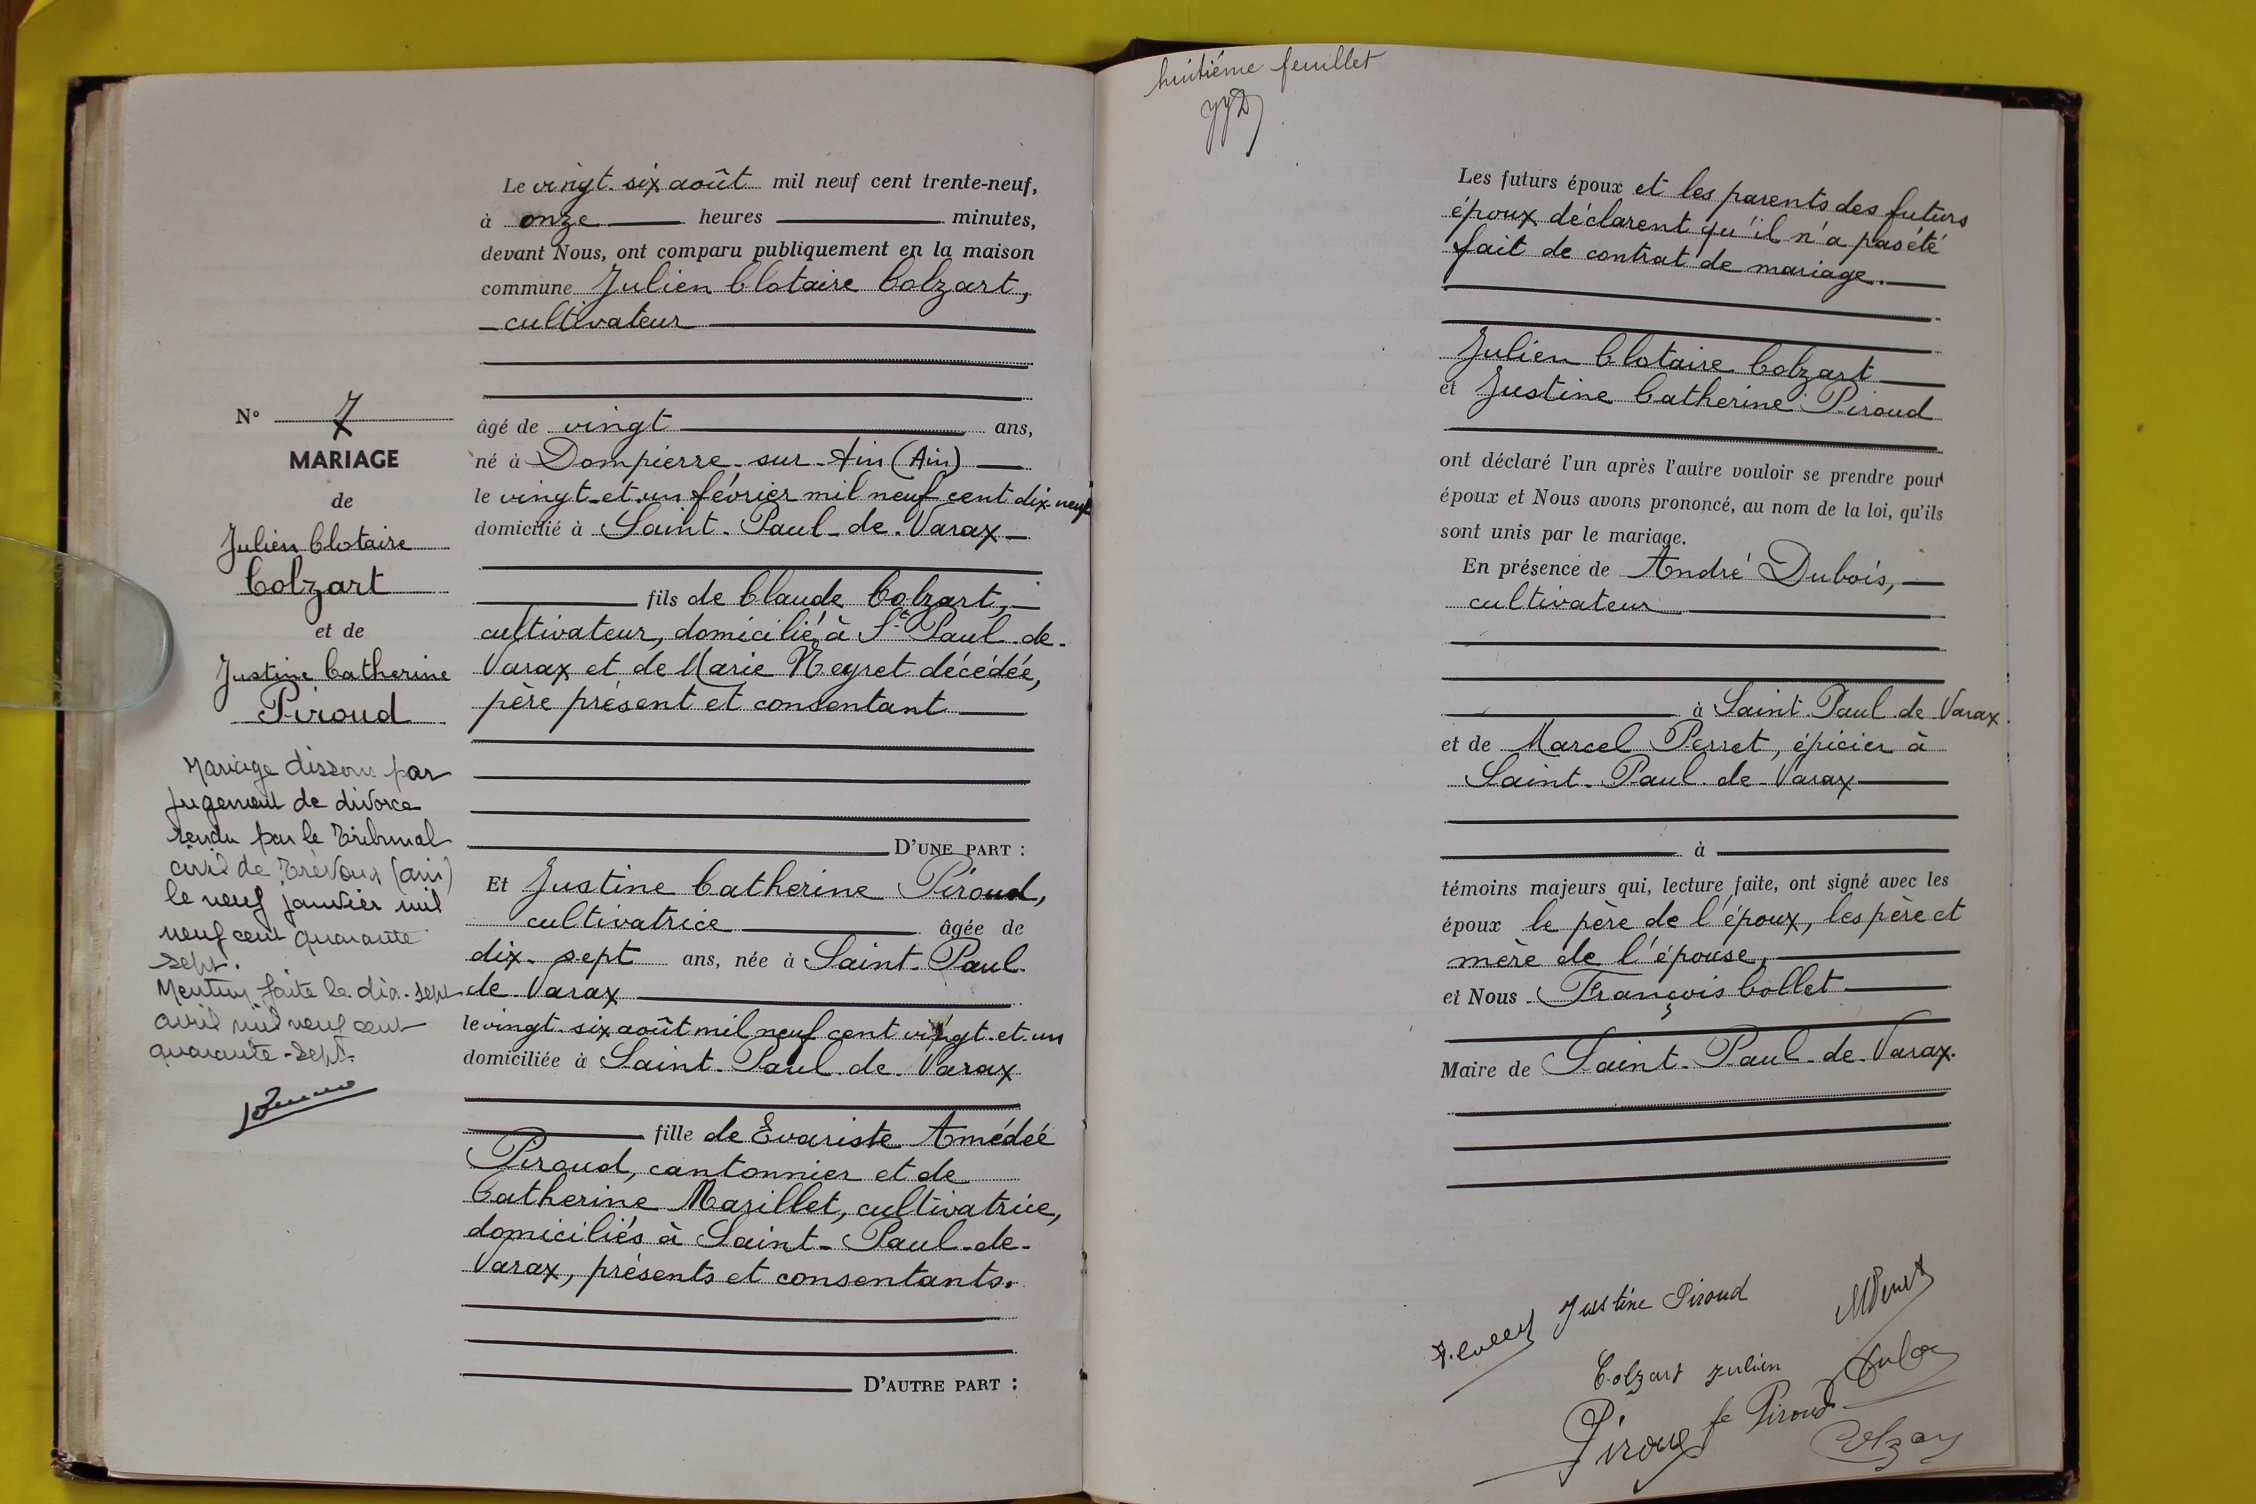 Le vingt-six août mil neuf cent trente-neuf,
à onze heures minutes,
devant Nous, ont comparu publiquement en la maison
commune Julien Clotaire Colzart,
cultivateur
N° 7
MARIAGE
de
Julien Clotaire
Colzart
et de
Justine Catherine
Piroud
Mariage dissous par
jugement de divorce
rendu par le Tribunal
civil de Trévoux (ain)
le neuf janvier mil
neuf cent quarante
sept.
Mention faite le dix-sept
avril mil neuf cent
quarante-sept.
âgé de vingt ans,
né à Dompierre-sur-Ain (Ain)
le vingt-et-un février mil neuf cent dix-neuf
domicilié à Saint-Paul-de-Varax
fils de Claude Colzart,
cultivateur, domicilié à St Paul-de-
Varax et de Marie Neyret décédée,
père présent et consentant
D'UNE PART :
Et Justine Catherine Piroud,
cultivatrice âgée de
dix-sept ans, née à Saint-Paul-
de-Varax
le vingt-six août mil neuf cent vingt-et-un
domiciliée à Saint-Paul-de-Varax
fille de Evariste Amédéé
Piroud, cantonnier et de
Catherine Marillet, cultivatrice,
domiciliés à Saint-Paul-de-
Varax, présents et consentants.
D'AUTRE PART :
huitième feuillet
Les futurs époux et les parents des futurs
époux déclarent qu'il n'a pas été
fait de contrat de mariage.
Julien Clotaire Colzart
et Justine Catherine Piroud
ont déclaré l'un après l'autre vouloir se prendre pour
époux et Nous avons prononcé, au nom de la loi, qu'ils
sont unis par le mariage.
En présence de André Dubois,
cultivateur
à Saint-Paul-de-Varax.
et de Marcel Perret, épicier à
Saint-Paul-de-Varax
à
témoins majeurs qui, lecture faite, ont signé avec les
époux le père de l'époux, les père et
mère de l'épouse,
et Nous François Collet
Maire de Saint-Paul-de-Varax.
F. Collet Justine Piroud MPerret
Colzart Julien Dubois
Piroud fe Piroud Colzart